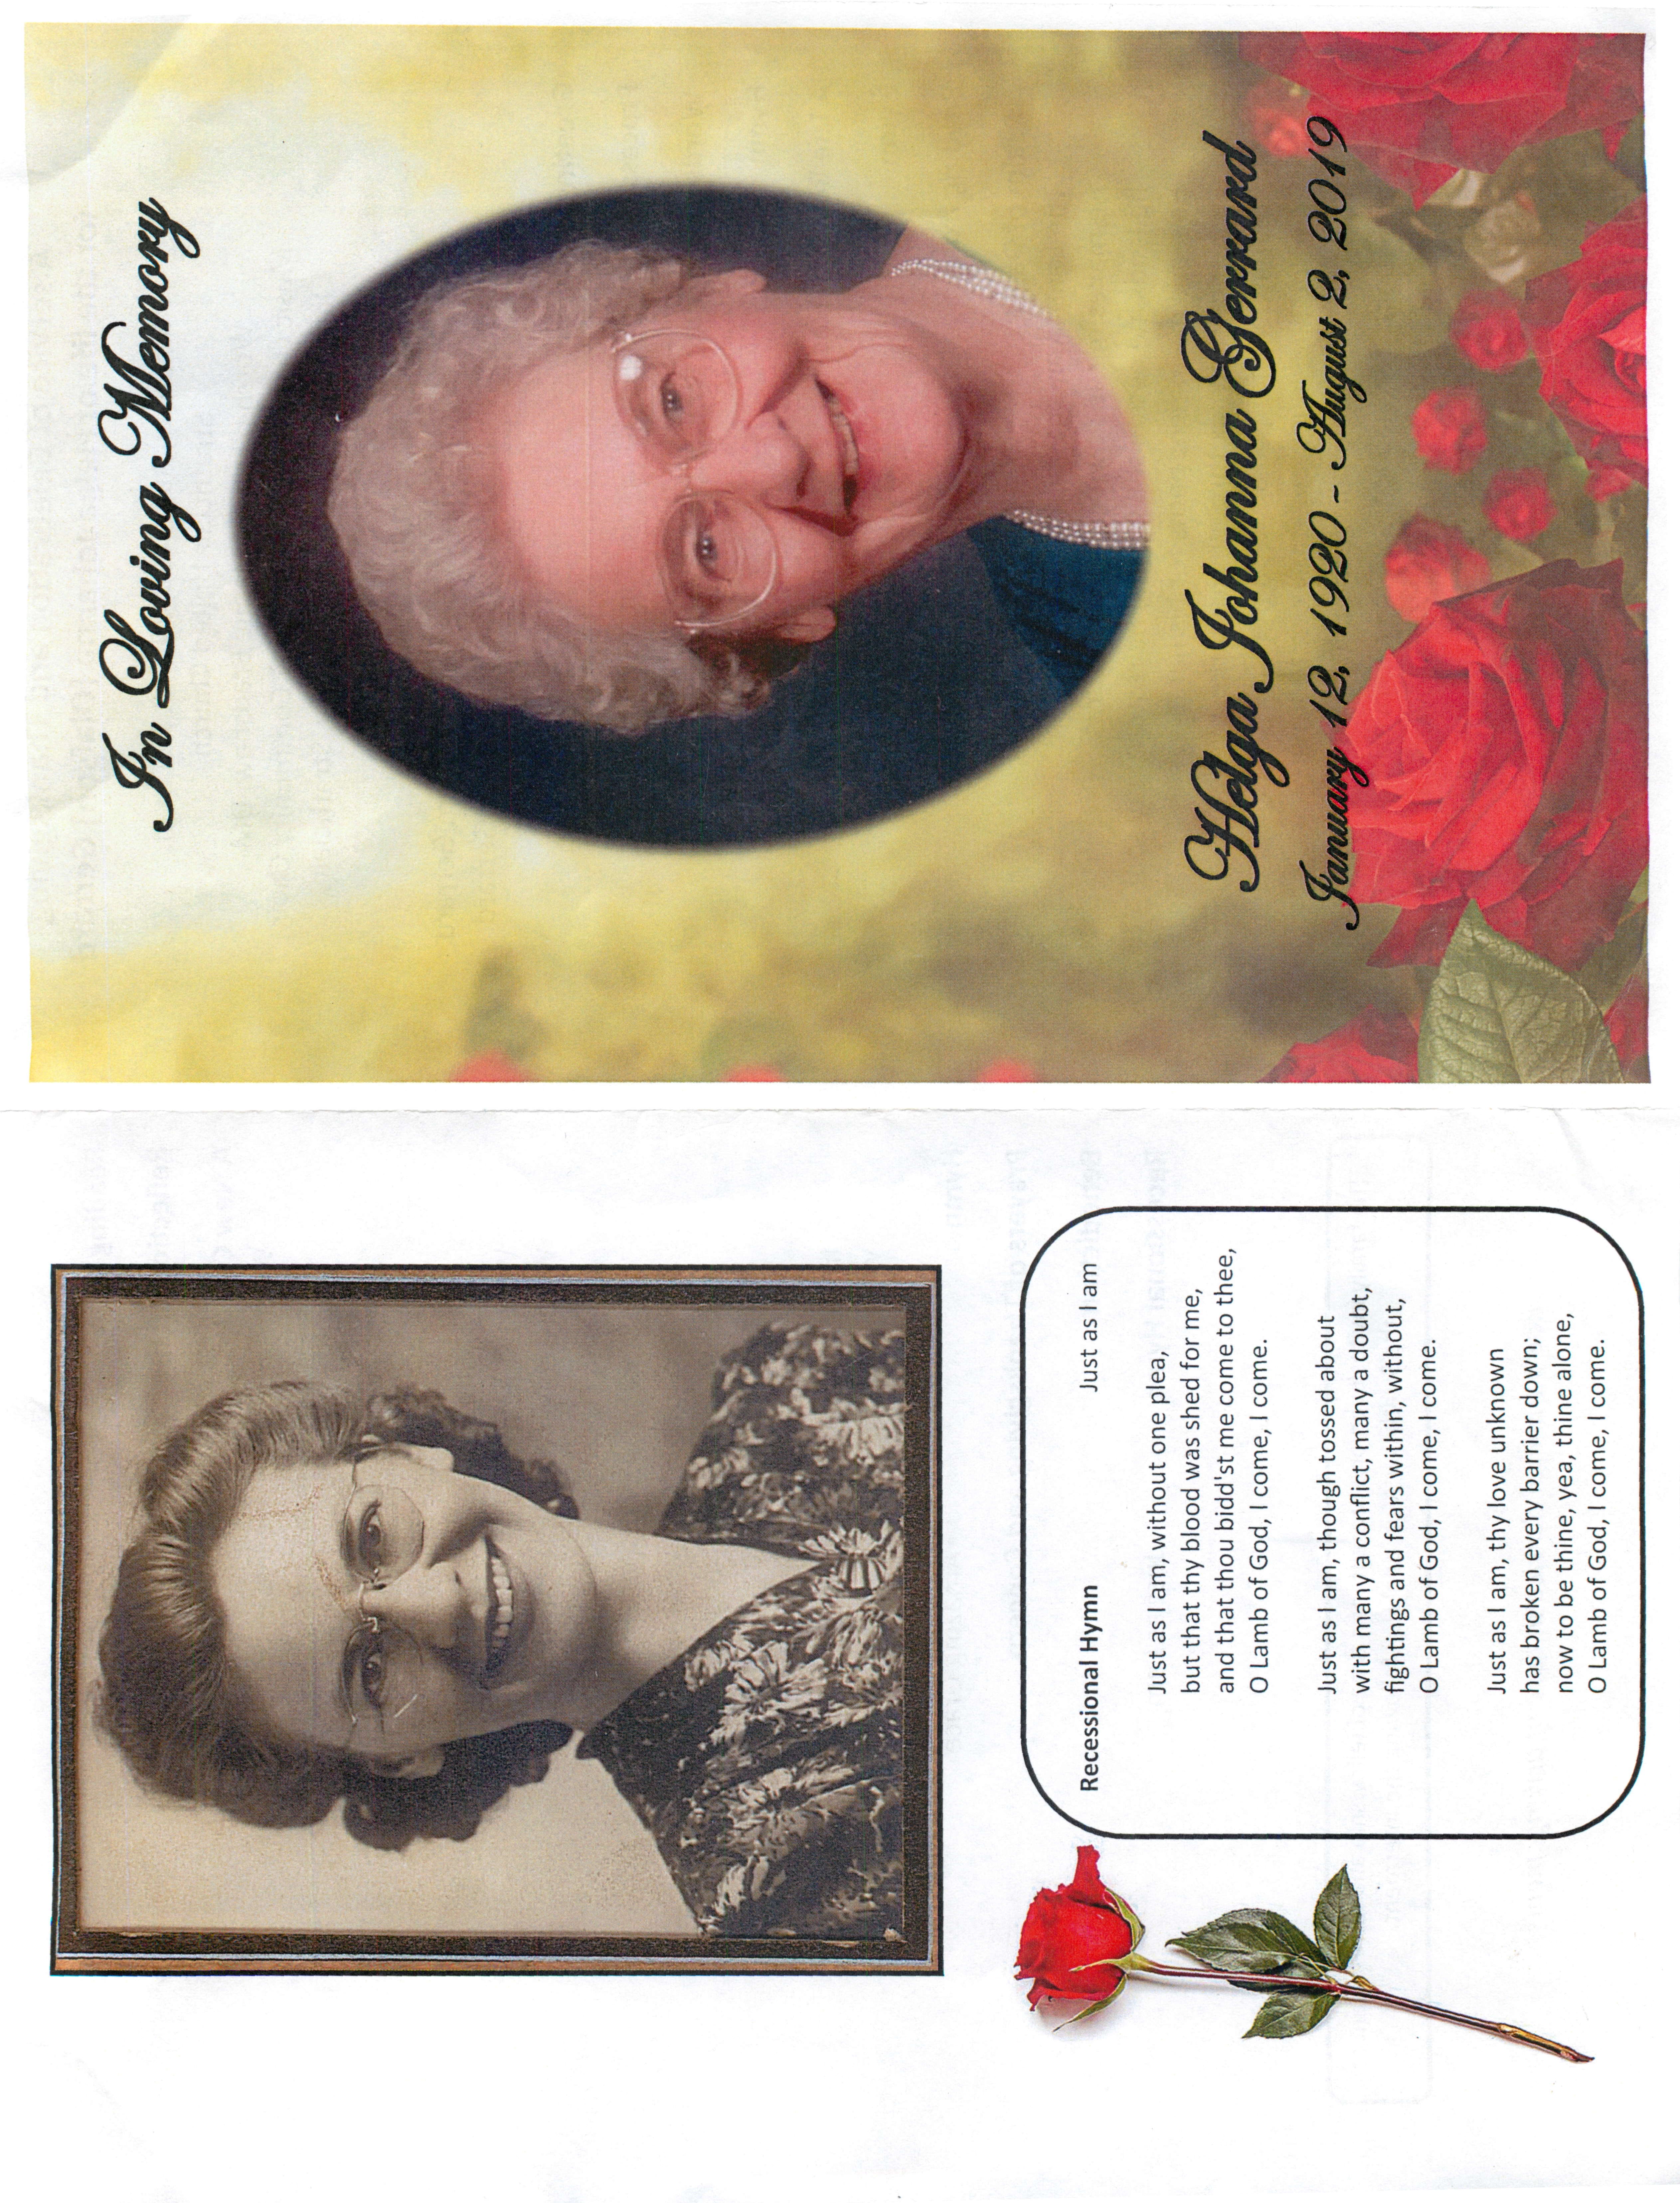 In Loving Memory
Helga Johanna Gerrard
January 12, 1920 - August 2, 2019
Recessional Hymn Just as I am
Just as I am, without one plea,
but that thy blood was shed for me,
and that thou bidd'st me come to thee,
O Lamb of God, I come, I come.
Just as I am, though tossed about
with many a conflict, many a doubt,
fightings and fears within, without,
O Lamb of God, I come, I come.
Just as I am, thy love unknown
has broken every barrier down;
now to be thine, yea, thine alone,
O Lamb of God, I come, I come.